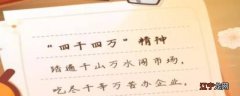 “四千四万”精神
踏遍千山万水闯市场，
吃尽千辛万苦办企业，